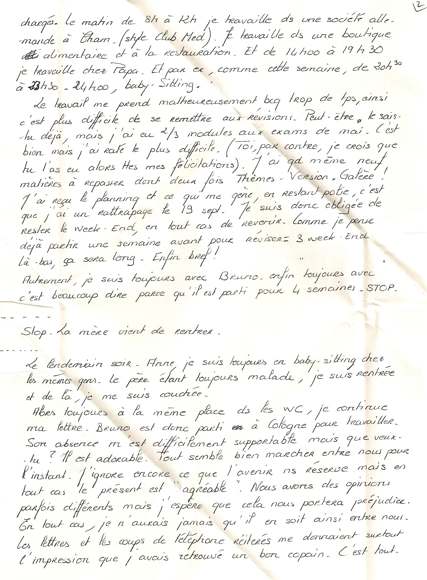 2
chargés. le matin de 8h à 12h je travaille ds une société alle-
mande à Cham. (style Club Med). Je travaille ds une boutique
alimentaire et à la restauration. Et de 14h00 à 19h30
je travaille chez Papa. Et par ex, comme cette semaine, de 20h30
à 23h30 - 24h00, baby-Sitting.
Le travail me prend malheureusement bcq trop de tps, ainsi
c'est plus difficile de se remettre aux révisions. Peut-être le sais-
tu déjà, mais j'ai eu 2/3 modules aux exams de mai. C'est
bien mais j'ai raté le plus difficile. (Toi, par contre, je crois que
tu l'as eu alors Hes mes félicitations). J'ai qd même neuf
matières à repasser dont deux fois Thèmes-Version. Galère !
J'ai reçu le planning et ce qui me gène, en restant polie, c'est
que j'ai un rattrapage le 19 sept. Je suis donc obligée de
rester le week-End, en tout cas de revenir. Comme je pense
déjà partir une semaine avant pour réviser = 3 week-End
là-bas, ça sera long. Enfin bref !
Autrement, je suis toujours avec Bruno. enfin toujours avec
c'est beaucoup dire parce qu'il est parti pour 4 semaines. STOP.
Stop. La mère vient de rentrer.
Le lendemain soir. Anne, je suis toujours en baby-sitting chez
les mêmes gens. le père étant toujours malade, je suis rentrée
et de là, je me suis couchée.
Alors toujours à la même place ds les WC, je continue
ma lettre. Bruno est donc parti à Cologne pour travailler.
Son absence m'est difficilement supportable mais que veux-
tu ? Il est adorable. Tout semble bien marcher entre nous pour
l'instant. J'ignore encore ce que l'avenir ns reserve mais en
tout cas le présent est "agréable". Nous avons des opinions
parfois différents mais j'espère que cela nous portera préjudice.
En tout cas, je n'aurais jamais qu'il en soit ainsi entre nous.
Les lettres et les coups de téléphone réitérés me donnaient surtout
l'impression que j'avais retrouvé un bon copain. C'est tout.